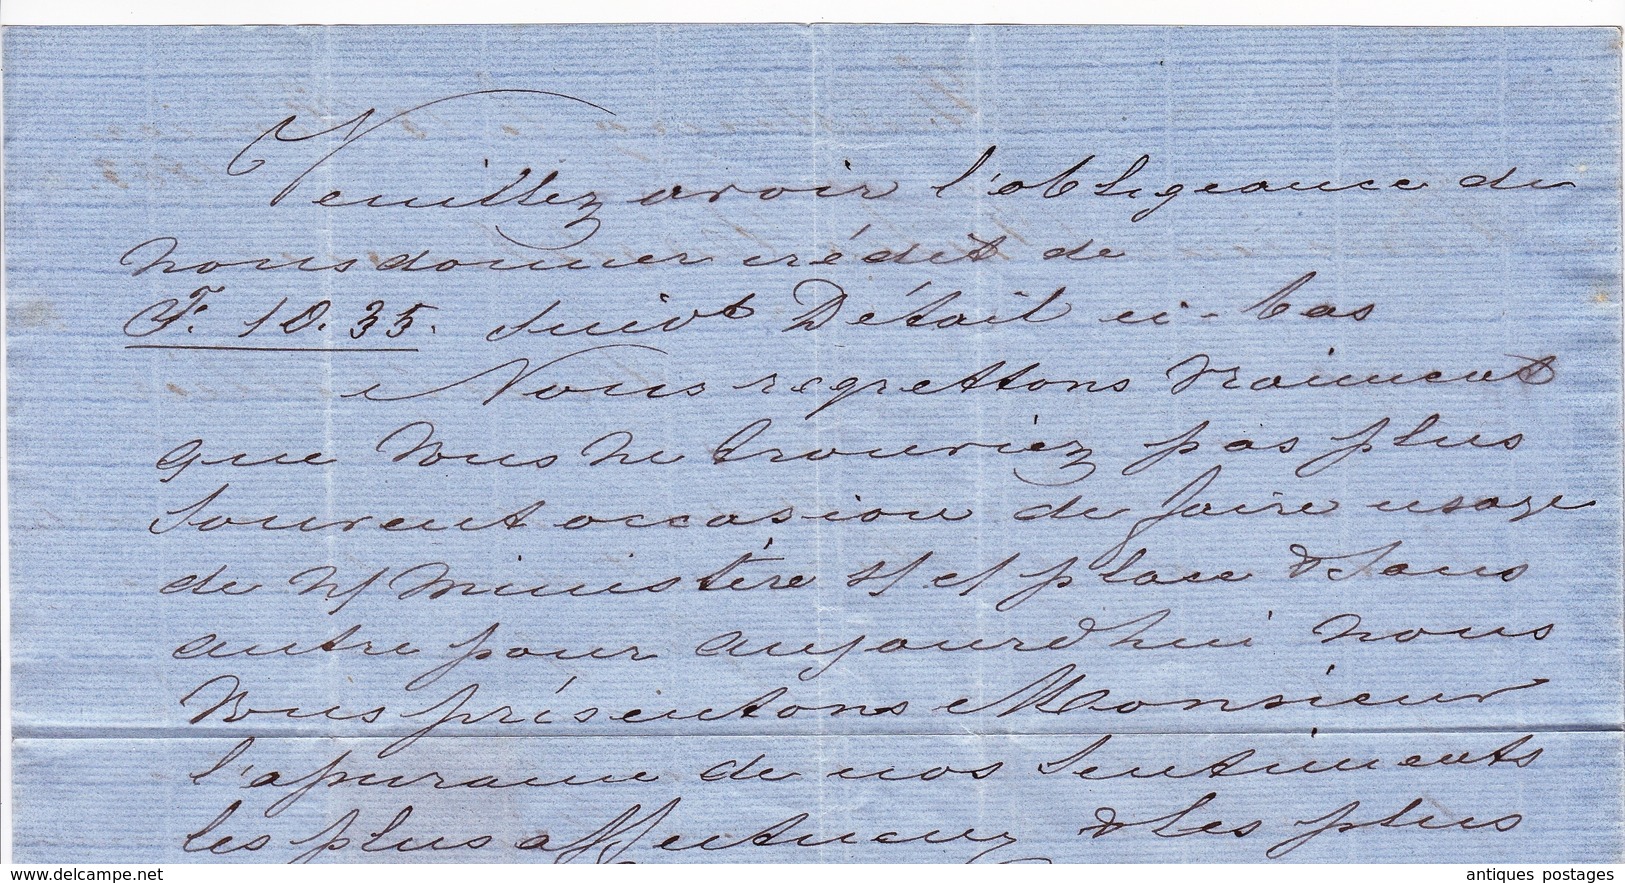 Veuillez avoir l'obligeance de
nous donner crédit de
F. 10.35. suivt Détail ci-bas
Nous regrettons vraiment
que vous ne trouviez pas plus
souvent occasion de faire usage
de n/ ministère s/ c/ place & sans
autre pour aujourd'hui nous
vous présentons Monsieur
l'assurance de nos sentiments
les plus affectueux & les plus
www.delcampe.net
antiques postages